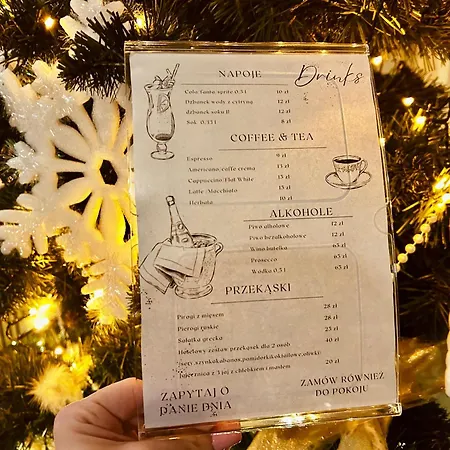 NAPOJE
Drinks
Cola, fanta, sprite 0,5 l 10 zł
Dzbanek wody z cytryną 12 zł
dzbanek soku ll 12 zł
Sok 0,33 l 8 zł
COFFEE & TEA
Espresso 9 zł
Americano/caffe crema 13 zł
Cappuccino/Flat White 13 zł
Latte /Macchiato 13 zł
Herbata 10 zł
ALKOHOLE
Piwo alkoholowe 12 zł
Piwo bezalkoholowe 12 zł
Wino butelka 65 zł
Prosecco 65 zł
Wódka 0,5 l 65 zł
PRZEKĄSKI
Pierogi z mięsem 28 zł
Pierogi ruskie 28 zł
Sałatka grecka 25 zł
Hotelowy zestaw przekąsek dla 2 osób 40 zł
(sery, szynka, kabanos, pomidorki koktajlowe, oliwki)
Jajecznica z 3 jaj z chlebkiem i masłem 20 zł
ZAPYTAJ O
DANIE DNIA
ZAMÓW RÓWNIEŻ
DO POKOJU